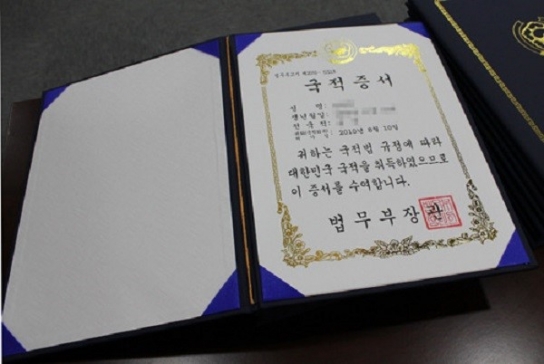 국적증서
성 명:
생년월일:
2019년 6월 10일
귀하는 국적법 규정에 따라
대한민국 국적을 취득하였으므로
이 증서를 수여합니다.
법무부장관